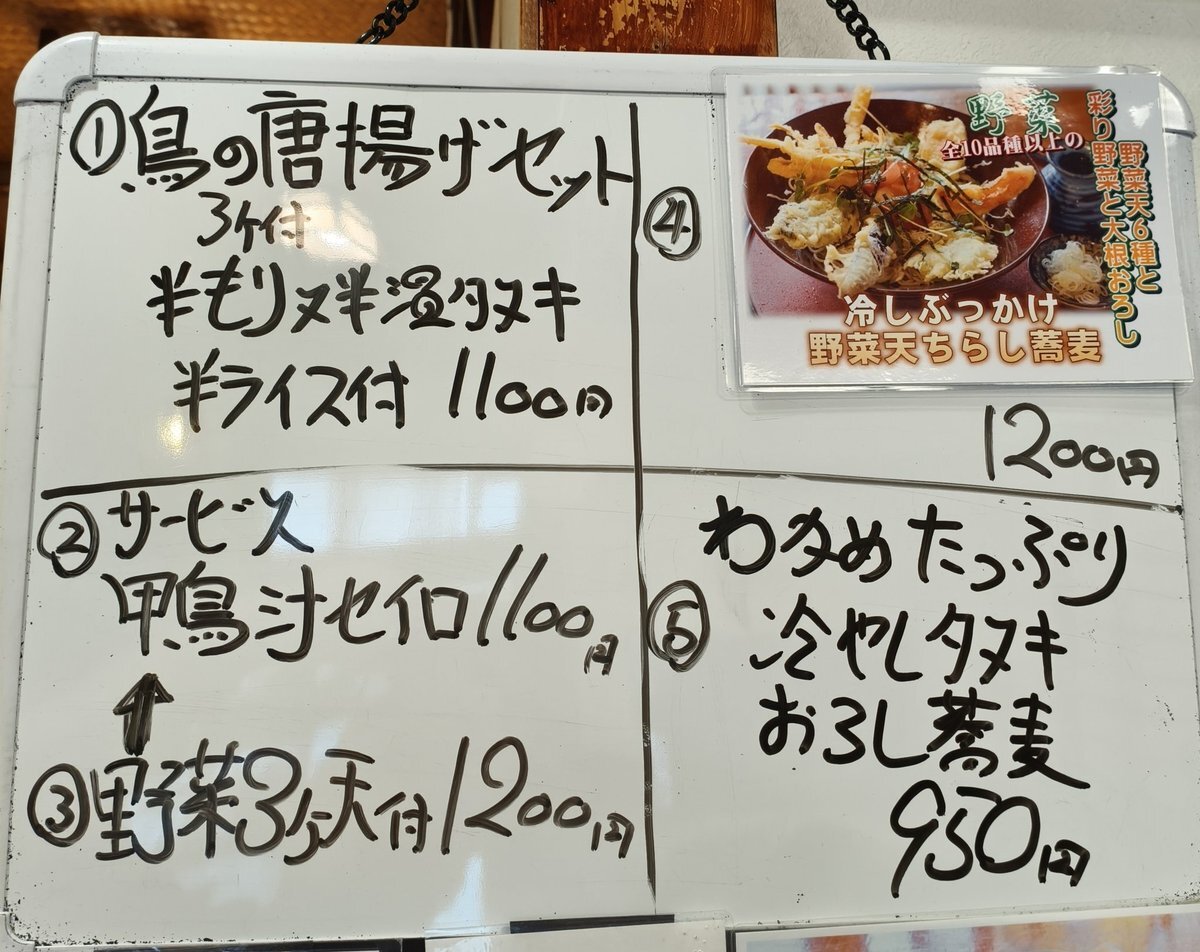 ①鳥の唐揚げセット
3ケ付
半もり又半温タヌキ
半ライス付 1100円
②サービス
鴨汁セイロ1100円
③野菜3ケ天付1200円
④
野菜
全10品種以上の
彩り野菜と大根おろし
野菜天6種と
冷しぶっかけ
野菜天ちらし蕎麦
1200円
⑤わかめたっぷり
冷やしタヌキ
おろし蕎麦
950円